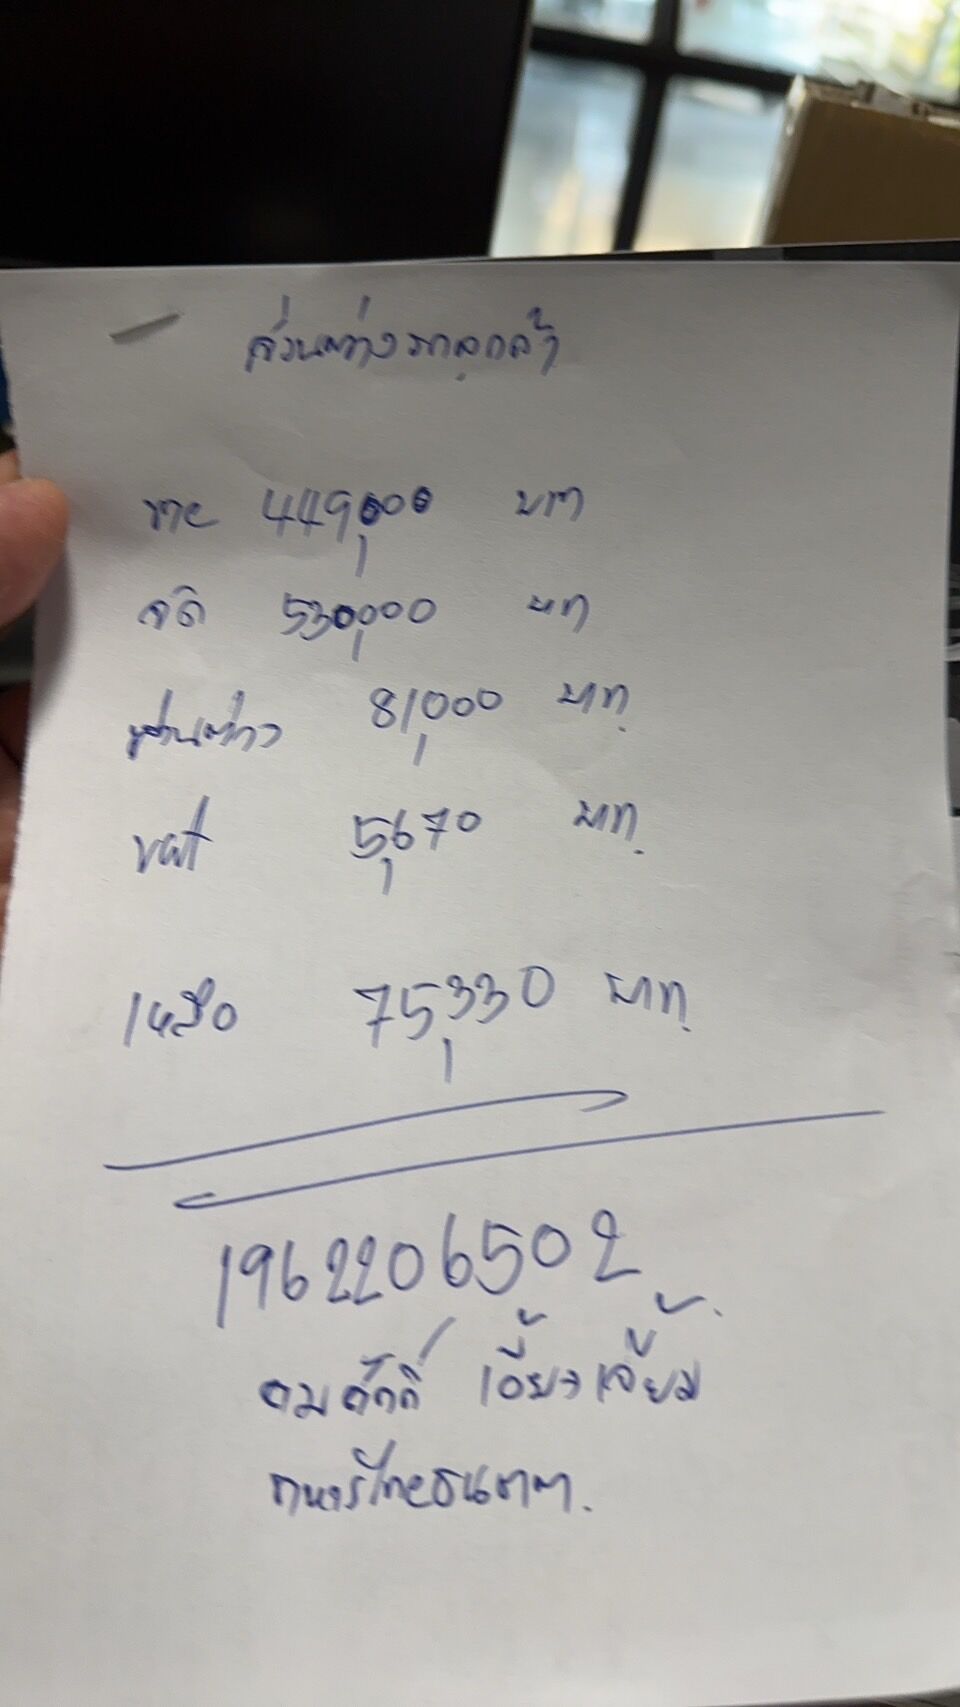 ส่วนต่างรถลูกค้า
ขาย 449,000 บาท
จัด 530,000 บาท
ส่วนต่าง 81,000 บาท
vat 5,670 บาท
เหลือ 75,330 บาท
1962206502
สมศักดิ์ เอี้ยงเจี้ยม
ทหารไทยธนชาต.